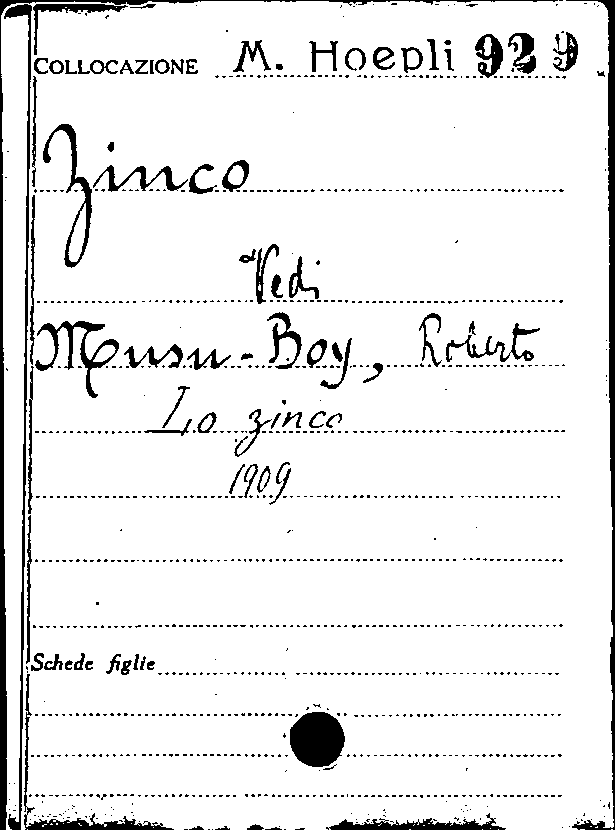 COLLOCAZIONE M. Hoepli 929
Zinco
Vedi
Musu-Boy, Roberto
Lo zinco
1909
Schede figlie